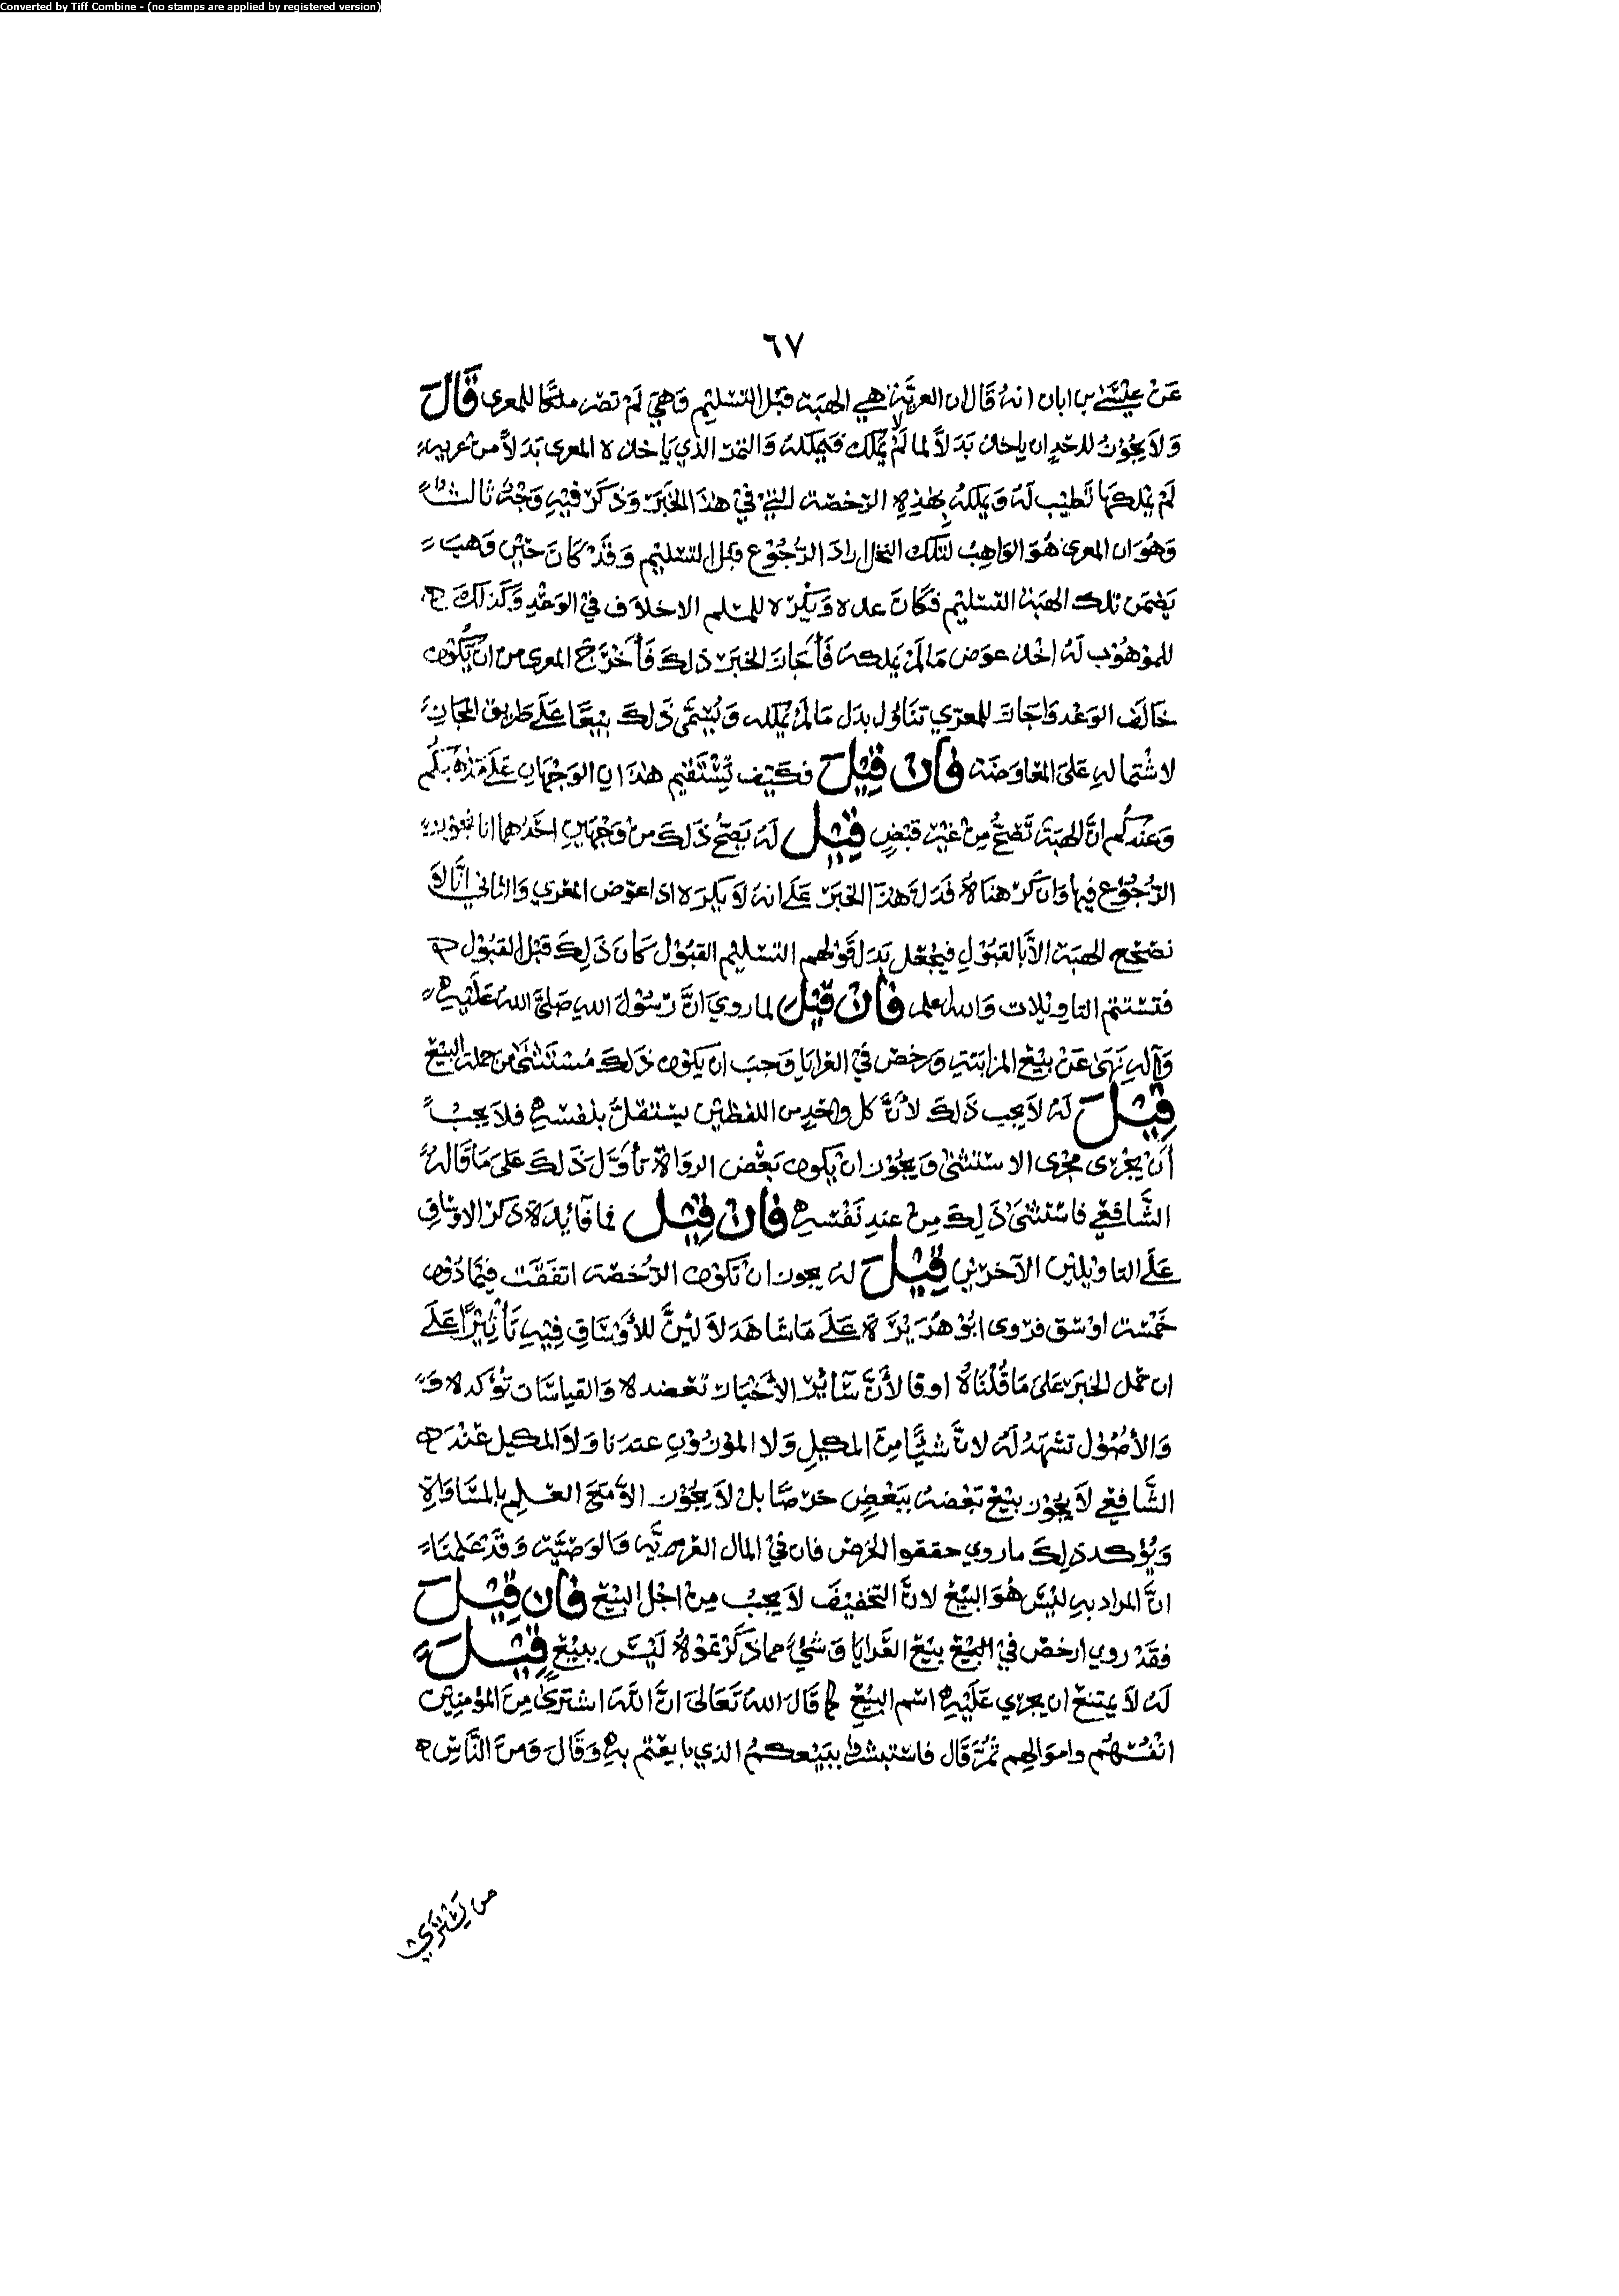 Converted by Tiff Combine - (no stamps are applied by registered version)
٦٧
عَنْ عِيْسَى بن ابان انهُ قَالَ ان العريَّة هي الهبَة قبْل التسْليم وَهِيَ لَمْ تصر ملكًا للمعرى قَالَ
وَلاَ يَجُوْزُ للاحَدٍ ان ياخذ بَدَلاً لما لَمْ يمْلِك فيملكهُ وَالتمر الذي يَاخذه المعرى بَدَلاً من عريه
لَمْ يمْلكهَا تَطيْب لَهُ وَيملكهُ بِهَذِهِ الرّخصَة التي في هٰذا الخبَر وَذكَرَ فيْهِ وَجْهٌ ثالث
وَهُوَ ان المعرى هُوَ الوَاهِبُ لتلك النخل اراد الرُّجُوْع قبل التسليم وَقَدْ كَانَ حيْن وَهبَ
يضمن تلك الهبَة التسْليم فكَانَ عده وَيكْره للمسلم الاخلاف في الوَعْدِ وَكَذلك
للموْهُوْب لَهُ اخذ عوَض مَا لَمْ يملكهُ فَأجَازَ الخبَر ذلكَ فَأخْرَجَ المعرى من انْ يَكُوْن
خَالَف الوَعْد وَاجَازَ للمعرَي تنَاوُل بدَل مَا لَمْ يملكه وَيُسَمَّى ذَلكَ بيْعًا عَلَى طَريق المجاز
لاشْتماله عَلىَ المعَاوَضَة فَانْ قِيْلَ فكَيْف يَسْتَقيْم هٰذَان الوَجْهَان عَلَى مَذْهَبكُم
وَعندكُم انَّ الهبَة تَصحُّ مِنْ غَيْر قَبْضٍ قِيْل لَهُ يَصِحُّ ذَلكَ منْ وَجْهَيْنِ احَدُهما انا نجوز
الرُّجُوْع فيها وَان كَرهنَاهُ فَدَلَّ هذَا الخبَر عَلَى انهُ لاَ يكره اذا عوّض المعْري وَالثاني انَّا لاَ
نصَحّح الهبَة الاَّ بالقبُوْل فيُجْعَل بَدَل قَوْلهم التسْليم القبُوْل كَانَ ذَلِكَ قَبْل القبُوْل
فتسْتتم التاويْلات وَالله اعلم فَانْ قيْل لما رويَ انَّ رَسُوْلَ اللهِ صَلَّى اللهُ عَلَيْهِ
وَآلهِ نَهَى عَنْ بيْع المزابَنَةِ وَرخصَ في العَرايَا وَجبَ ان يَكوْن ذَلكَ مُسْتَثنىً من جملة البيْع
قِيْلَ لَهُ لاَ يجب ذَلكَ لأَنَّ كل وَاحِدٍ من اللفظيْن يسْتقلّ بنفسهِ فلاَ يجبُ
أنْ يجْرَى مجْرَى الاسْتثنَى وَيجُوْز انْ يكَونَ بَعْض الروَاة تَأَوَّلَ ذَلكَ عَلى مَا قَالَهُ
الشَّافعيّ فاسْتثنَى ذَلِكَ مِنْ عندِ نَفْسهِ فَانْ قِيْل فما فَائدَة ذكر الاوْسَاقِ
عَلَى التاويْليْن الآخرَيْن قِيْلَ لهُ يجوز انْ تَكوْن الرُّخصَة اتفَقَت فيْمَا دُوْن
خَمْسَة اوْسق فرَوى ابُوْ هُرَيْرَةَ عَلَى مَا شَاهَدَ لاَ لأَنَّ للأَوْسَاقِ فِيْهِ تَأثيْرًا عَلَى
ان حمل الخبَر عَلىَ مَا قُلْنَاهُ اوفا لأنَّ سَآئرَ الأَخْبَار تعْضده وَالقياسَات تؤكده وَ
وَالأُصُوْل تشهَدُ لَهُ لانَّ شيْئًا مِنَ المكيل وَلا الموْزُوْنِ عندَنا وَلاَ المكيل عنْدَ
الشَّافعي لاَ يجوْز بيْع بَعْضهُ ببَعْضٍ خرصًا بلْ لاَ يجُوْز الاَّ مَعَ العلمِ بالمسَاوَاةِ
وَيُؤكد ذلكَ ما روي خففوا الخرْص فان في المال العَريَّه وَالوَصيَّة وَقَدْ عَلمنَا
انَّ المراد بهِ ليْسَ هُوَ البيْع لانَّ التخفيْف لاَ يجبُ مِنْ اجْل البَيْع فَان قِيْلَ
فقَدْ روي ارخصَ في البَيْع بيْع العَرايَا وَشيْءٌ مما ذَكَرْتموْهُ لَيْسَ ببيْعٍ قِيْلَ
لَهُ لاَ يمتنعُ ان يجري عَلَيْهِ اسْم البَيْع كَما قَالَ اللهُ تَعَالىَ انَّ اللهَ اشتَرىَ مِنَ المؤمِنِيْنَ
انْفُسَهُم وامْوَالهم ثمَّ قَال فاسْتبشروا ببَيْعكمُ الذي بايعْتم بهِ وَقَالَ وَمنَ النَّاسِ
من يَشْتَرِي